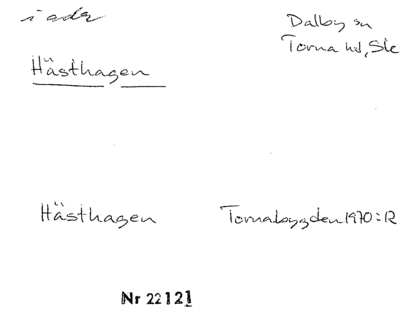 i ader
Dalby sn
Torna hd, Skе
Hästhagen
Hästhagen
Tornabygden 1970:12
Nr 22121